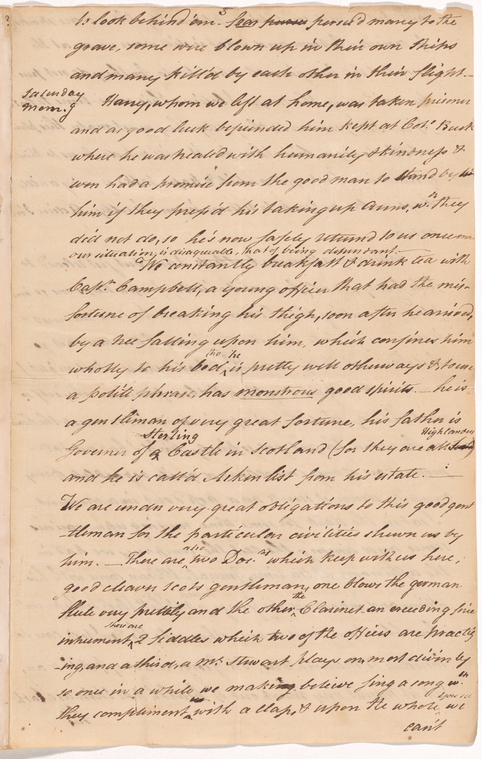 to look behind 'em. fear pursued many to the
grave, some were blown up in their own ships
and many kill'd by each other in their flight.—
Saturday
Morn.g
Harry, whom we left at home, was taken prisoner
and as good luck befriended him kept at Col.
where he was treated with humanity & kindness &
even had a promise from the good man to stand by
him if they press'd his taking up Arms, wch they
did not do, so he's now safely return'd to us once more
our situation is disagreeable, that of being defendant—
We constantly breakfast & drink tea with
Capt. Campbell, a young officer that had the mis-
fortune of breaking his thigh, soon after he arrived,
by a tree falling upon him, which confines him
wholly to his bed, tho he is pretty well otherways & to use
a polite phrase, has monstrous good spirits — he is
a gentleman of very great fortune, his father is
Governor of Sterling Castle in Scotland (for they are all Highlanders)
and he is call'd from his estate. —
We are under very great obligations to this good gent
-tleman for the particular civilities shewn us by
him. — There are also, two Docrs which keep with us here,
good cleaver Scots gentlemen, one blows the german
flute very prettily and the other the Clarinet an exceeding fine
instrument, & fiddles which two of the officers are practis
-ing, and a third, a Mr Stewart plays on most divinly
so once in a while we making believe sing a song wch
they compliment us with a clap & upon the whole, you see we
can't